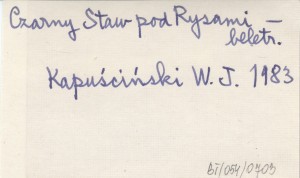 Czarny Staw pod Rysami –
beletr.
Kapuściński W. J. 1983
BI/054/0703